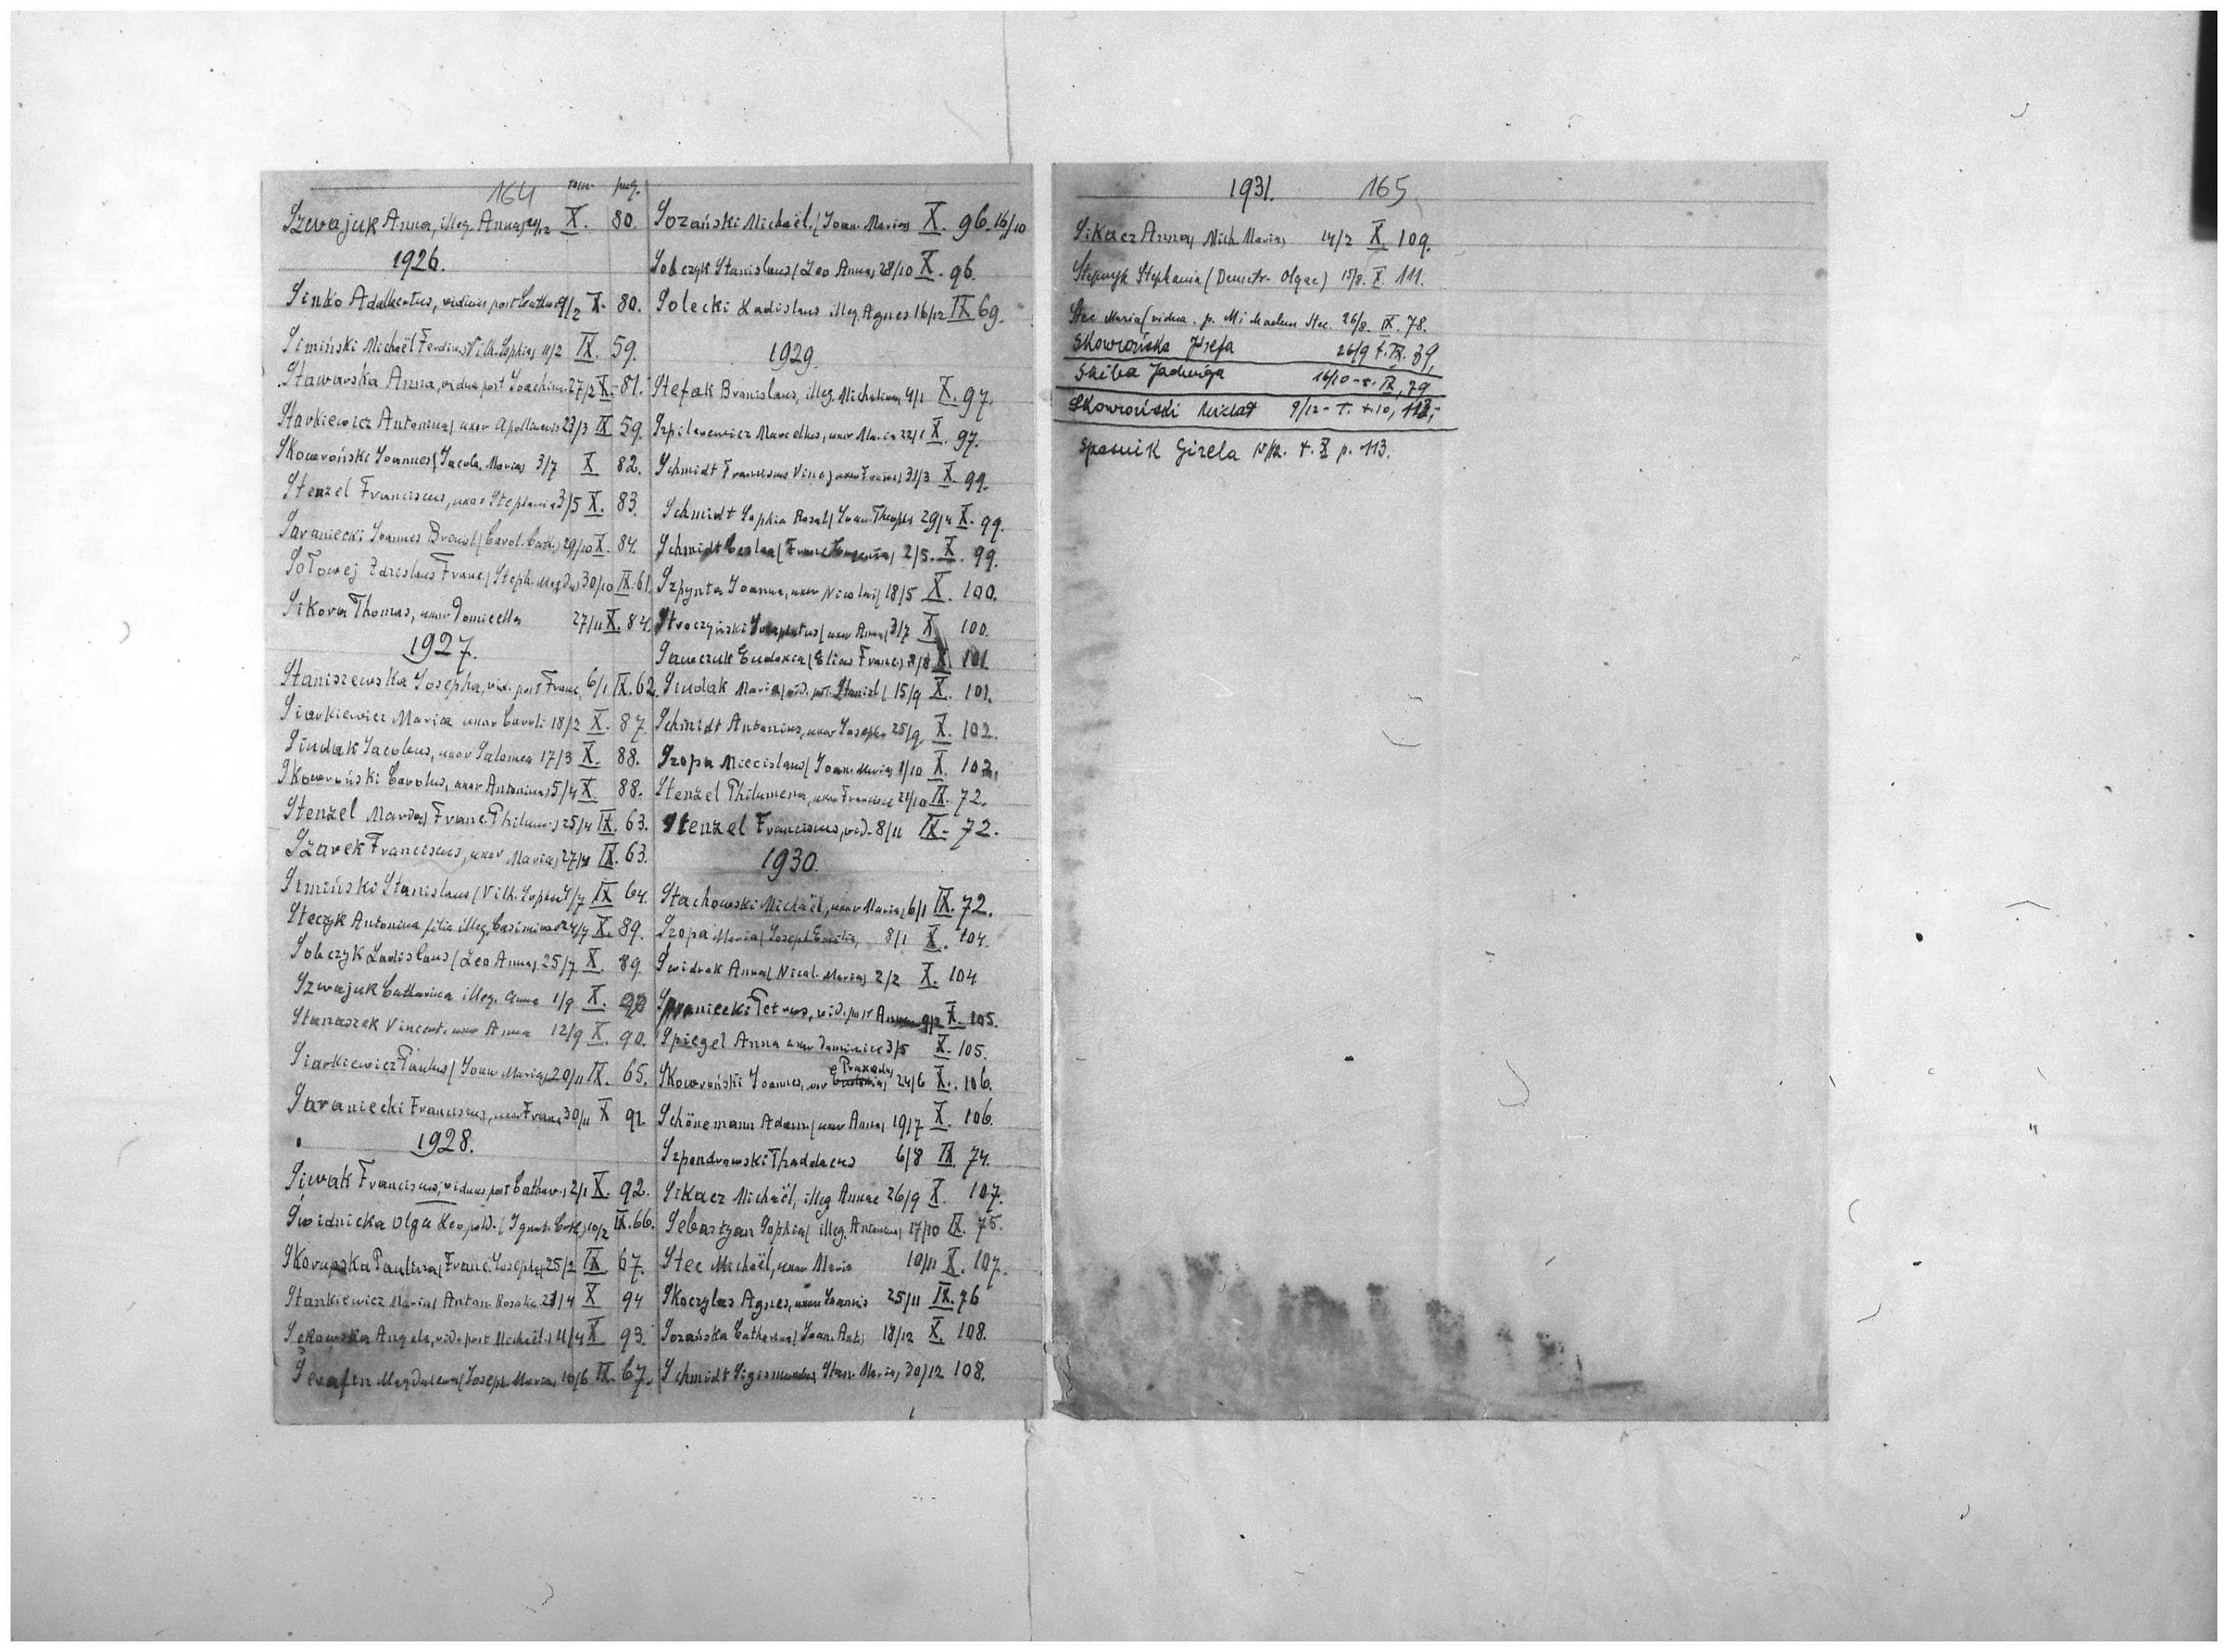 164 tom. pag.
Szwajuk Anna, illeg. Anna, X. 80.
1926.
Sinko Adalbertus, viduus post Cathar. 9/2 X. 80.
Simiński Michaël Ferdin. Vilh. Sophia, 11/2 IX. 59.
Stawarska Anna, vidua post Joachim. 27/2 X. 81.
Starkiewicz Antonina, uxor Apollinaris 23/3 IX 59.
Skowroński Joannes, Jacob. Maria, 3/7 X 82.
Stenzel Franciscus, uxor Stephania 3/5 X. 83.
Saraniecki Joannes Bronisl. (Carol. Cath.) 29/10 X. 84.
Sołowej Zdzislaus Franc. (Steph. Magd.) 30/10 IX. 61.
Sikora Thomas, uxor Domicella 27/11 X. 84.
1927.
Staniszewska Josepha, vid. post Franc. 6/1 IX. 62.
Siarkiewicz Maria uxor Caroli 18/2 X. 87.
Siudak Jacobus, uxor Salomea 17/3 X. 88.
Skowroński Carolus, uxor Antonina, 5/4 X. 88.
Stenzel Maria, Franc. Philum. 25/4 IX. 63.
Szarek Franciscus, uxor Maria, IX. 63.
Simiński Stanislaus (Vilh. Sophia) 4/7 IX 64.
Steczyk Antonina filia illeg. Casimira 24/7 X. 89.
Sobczyk Ladislaus (Leo Anna, 25/7 X. 89.
Szwajuk Catharina illeg. Anna 1/9 X. 90
Stanaszek Vincent. uxor Anna 12/9 X. 90.
Siarkiewicz Paulus (Joan. Maria, 20/11 IX. 65.
Saraniecki Franciscus, uxor Franc. 30/11 X 91.
1928.
Siwak Franciscus, viduus post Cathar. 2/1 X. 92.
Świdnicka Olga Leopold. (Ignat. Cath.) 10/2 IX. 66.
Skorupska Paulina (Franc. Josepha, 25/2 IX 67.
Stankiewicz Maria (Anton. Rosalia 21/4 X 94
Sękowska Angela, vid. post Michaël. 11/4 X 93.
Serafin Magdalena (Joseph. Maria, 10/6 IX. 67.
Sozański Michaël. (Joan. Maria, X. 96. 16/10
Sobczyk Stanislaus (Leo Anna, 28/10 X. 96.
Solecki Ladislaus illeg. Agnes 16/12 IX 69.
1929.
Stefak Bronislaus, illeg. Michalina, 4/1 X. 97.
Szpilarewicz Marcellus, uxor Maria 22/1 X. 97.
Schmidt Franciscus Vinc. uxor 31/3 X. 99.
Schmidt Sophia Rosal. (Joan. Theophila 29/4 X. 99.
Schmidt (Franc. Eugenia, 2/5. X. 99.
Szpynta Joanna, uxor Nicolai 18/5 X. 100.
Stroczyński uxor Anna, 3/7 X 100.
Sawczuk Eudoxia (Elias Franc.) 8/8 X 101.
Siudak Maria (vid. post Stanisl. 15/9 X. 101.
Schmidt Antonius, uxor Josepha 25/9 X. 102.
Szopa Miecislaus (Joan. Maria, 1/10 X. 102.
Stenzel Philumena, uxor Francisci 21/10 IX. 72.
Stenzel Franciscus, vid. 8/11 IX. 72.
1930.
Stachowski Michaël, uxor Maria, 6/1 IX. 72.
Szopa Maria (Joseph Emilia, 8/1 X. 104.
Świdrak Anna (Nicol. Maria, 2/2 X. 104
Saraniecki Petrus, vid. post X. 105.
Spiegel Anna uxor Dominici 3/5 X. 105.
Praxeda,
Skowroński Joannes, uxor 24/6 X. 106.
Schönemann Adam, uxor Anna, 19/7 X. 106.
Szpondrowski Thaddaeus 6/8 IX 74.
Sikacz Michaël, illeg. Annae 26/9 X. 107.
Sebastyan Sophia, illeg. 17/10 IX. 75.
Stec Michaël, uxor Maria 10/11 X. 107.
Skoczylas Agnes, uxor Joannis 25/11 IX. 76
Sozańska Catharina (Joan. Ant. 18/12 X. 108.
Schmidt Sigismundus, Stan. Maria, 30/12 108.
1931. 165
Sikacz Anna, Mich. Maria, 14/2 X. 109.
Stepczyk Stephania (Demetr. Olgae) 15/8. X. 111.
Stec Maria (vidua p. Stec. 26/8. IX. 78.
Skowrońska Józefa 26/9 t. IX. 39,
Skiba Jadwiga 16/10 - t. IX, 79
Skowroński 9/12 - T. t. 10, 113,-
Spasnik Gizela 15/12. t. X p. 113.